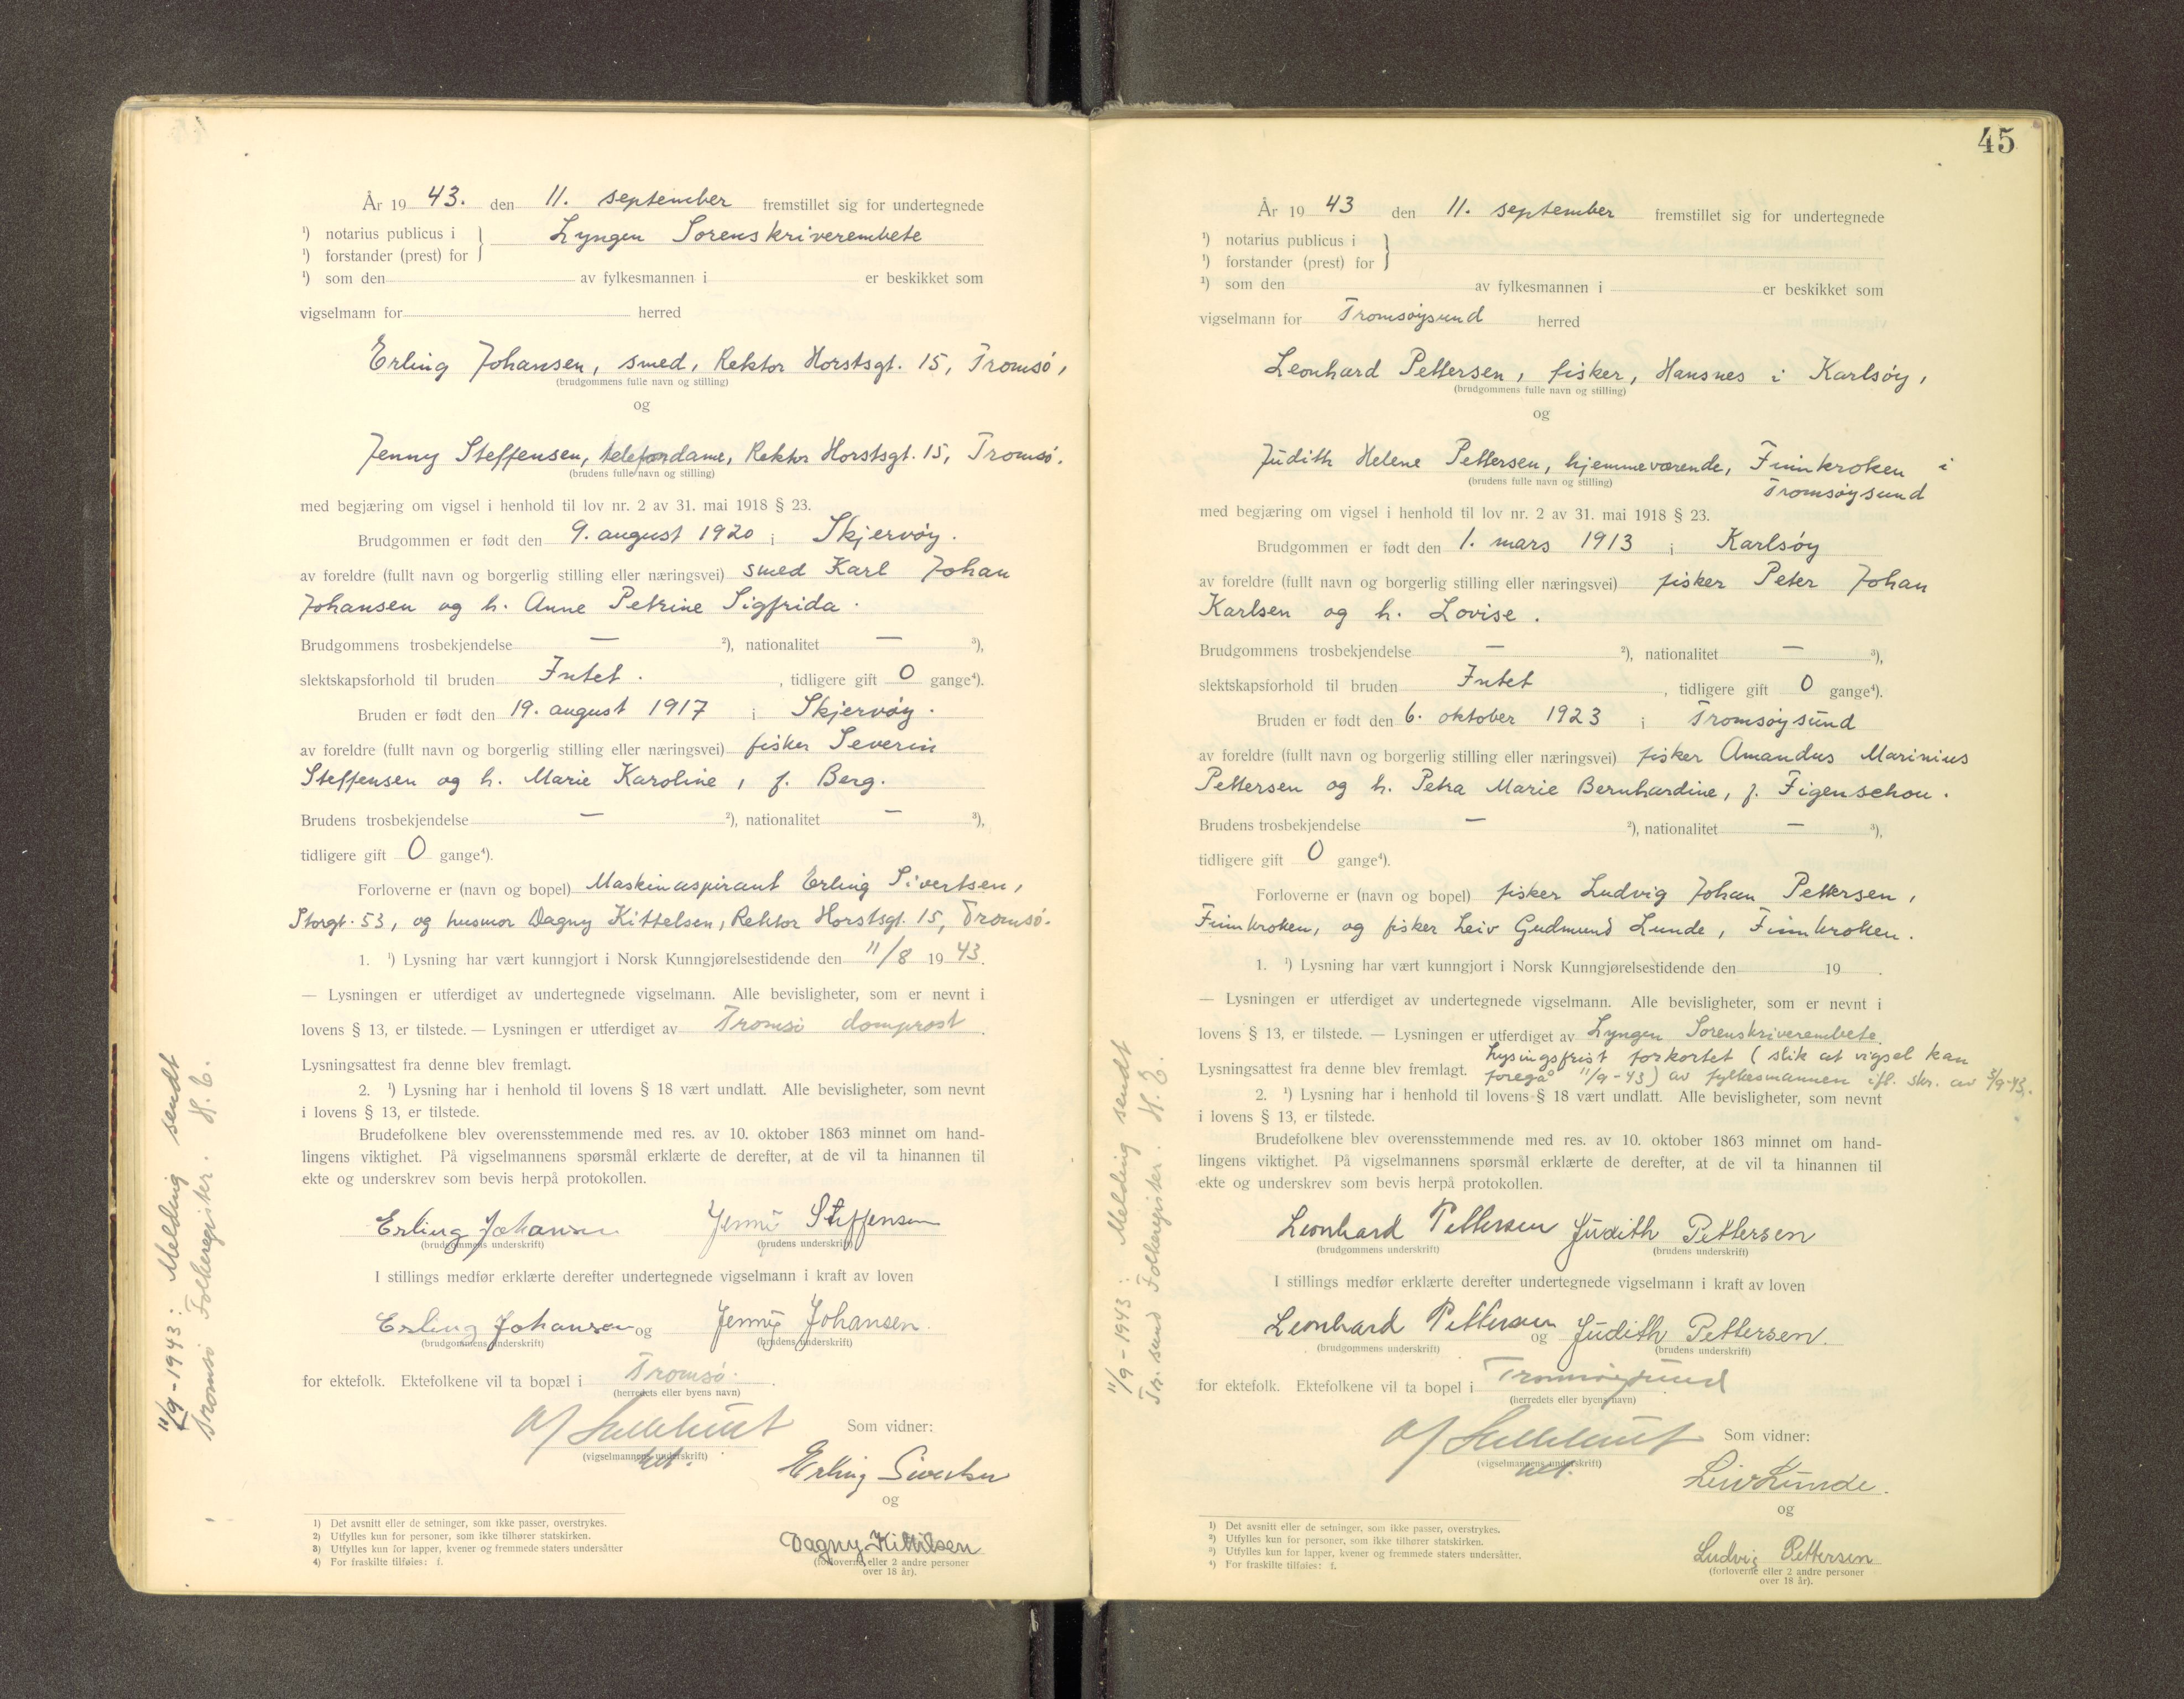 År 19 43. den 11. september fremstillet sig for undertegnede
¹) notarius publicus i } Lyngen Sorenskriverembete
¹) forstander (prest) for
¹) som den av fylkesmannen i er beskikket som
vigselmann for herred
Erling Johansen, smed, Rektor Horstsgt. 15, Tromsö,
(brudgommens fulle navn og stilling)
og
Jenny Steffensen, telefondame, Rektor Horstsgt. 15, Tromsö.
(brudens fulle navn og stilling)
med begjæring om vigsel i henhold til lov nr. 2 av 31. mai 1918 § 23.
Brudgommen er født den 9. august 1920 i Skjervöy.
av foreldre (fullt navn og borgerlig stilling eller næringsvei) smed Karl Johan
Johansen og h. Anne Petrine Sigfrida.
Brudgommens trosbekjendelse — ²), nationalitet — ³),
slektskapsforhold til bruden Intet. , tidligere gift 0 gange⁴).
Bruden er født den 19. august 1917 i Skjervöy.
av foreldre (fullt navn og borgerlig stilling eller næringsvei) fisker Severin
Steffensen og h. Marie Karoline, f. Berg.
Brudens trosbekjendelse — ²), nationalitet — ³),
tidligere gift 0 gange⁴).
Forloverne er (navn og bopel) Maskinaspirant Erling Sivertsen,
Storgt. 53, og husmor Dagny Kittelsen, Rektor Horstsgt. 15, Tromsö.
1. ¹) Lysning har vært kunngjort i Norsk Kunngjørelsestidende den 11/8 19 43.
— Lysningen er utferdiget av undertegnede vigselmann. Alle bevisligheter, som er nevnt i
lovens § 13, er tilstede. — Lysningen er utferdiget av Tromsö domprost.
Lysningsattest fra denne blev fremlagt.
2. ¹) Lysning har i henhold til lovens § 18 vært undlatt. Alle bevisligheter, som nevnt
i lovens § 13, er tilstede.
Brudefolkene blev overensstemmende med res. av 10. oktober 1863 minnet om hand-
lingens viktighet. På vigselmannens spørsmål erklærte de derefter, at de vil ta hinannen til
ekte og underskrev som bevis herpå protokollen.
Erling Johansen Jenny Steffensen
(brudgommens underskrift) (brudens underskrift)
I stillings medfør erklærte derefter undertegnede vigselmann i kraft av loven
Erling Johansen og Jenny Johansen.
(brudgommens underskrift) (brudens underskrift)
for ektefolk. Ektefolkene vil ta bopæl i Tromsö.
(herredets eller byens navn)
Som vidner:
(vigselmannens underskrift)
Erling Sivertsen
og
Dagny Kittilsen
(forloverne eller 2 andre personer
over 18 år).
1) Det avsnitt eller de setninger, som ikke passer, overstrykes.
2) Utfylles kun for personer, som ikke tilhører statskirken.
3) Utfylles kun for lapper, kvener og fremmede staters undersåtter
4) For fraskilte tilføies: f.
11/9-1943: Melding sendt
Tromsö Folkeregister. H. E.
45
År 19 43 den 11. september fremstillet sig for undertegnede
¹) notarius publicus i }
¹) forstander (prest) for
¹) som den av fylkesmannen i er beskikket som
vigselmann for Tromsöysund herred
Leonhard Pettersen, fisker, Hansnes i Karlsöy,
(brudgommens fulle navn og stilling)
og
Judith Helene Pettersen, hjemmeværende, Finnkroken i
(brudens fulle navn og stilling) Tromsöysund
med begjæring om vigsel i henhold til lov nr. 2 av 31. mai 1918 § 23.
Brudgommen er født den 1. mars 1913 i Karlsöy
av foreldre (fullt navn og borgerlig stilling eller næringsvei) fisker Peter Johan
Karlsen og h. Lovise.
Brudgommens trosbekjendelse — ²), nationalitet — ³),
slektskapsforhold til bruden Intet , tidligere gift 0 gange⁴).
Bruden er født den 6. oktober 1923 i Tromsöysund
av foreldre (fullt navn og borgerlig stilling eller næringsvei) fisker Amandus Marinius
Pettersen og h. Petra Marie Bernhardine, f. Figenschou.
Brudens trosbekjendelse — ²), nationalitet — ³),
tidligere gift 0 gange⁴).
Forloverne er (navn og bopel) fisker Ludvig Johan Pettersen,
Finnkroken, og fisker Leiv Gudmund Lunde, Finnkroken.
1. ¹) Lysning har vært kunngjort i Norsk Kunngjørelsestidende den 19 .
— Lysningen er utferdiget av undertegnede vigselmann. Alle bevisligheter, som er nevnt i
lovens § 13, er tilstede. — Lysningen er utferdiget av Lyngen Sorenskriverembete.
Lysningsattest fra denne blev fremlagt. Lysingsfrist forkortet (slik at vigsel kan
foregå 11/9-43) av fylkesmannen ifl. skr. av 3/9-43.
2. ¹) Lysning har i henhold til lovens § 18 vært undlatt. Alle bevisligheter, som nevnt
i lovens § 13, er tilstede.
Brudefolkene blev overensstemmende med res. av 10. oktober 1863 minnet om hand-
lingens viktighet. På vigselmannens spørsmål erklærte de derefter, at de vil ta hinannen til
ekte og underskrev som bevis herpå protokollen.
Leonhard Pettersen Judith Pettersen
(brudgommens underskrift) (brudens underskrift)
I stillings medfør erklærte derefter undertegnede vigselmann i kraft av loven
Leonhard Pettersen og Judith Pettersen.
(brudgommens underskrift) (brudens underskrift)
for ektefolk. Ektefolkene vil ta bopel i Tromsöysund
(herredets eller byens navn)
Som vidner:
(vigselmannens underskrift)
Leiv Lunde.
og
Ludvig Pettersen
(forloverne eller 2 andre personer
over 18 år).
¹) Det avsnitt eller de setninger, som ikke passer, overstrykes.
²) Utfylles kun for personer, som ikke tilhører statskirken.
³) Utfylles kun for lapper, kvener og fremmede staters undersåtter.
⁴) For fraskilte tilføies: f.
11/9-1943: Melding sendt
Tr. sund Folkeregister. H. E.